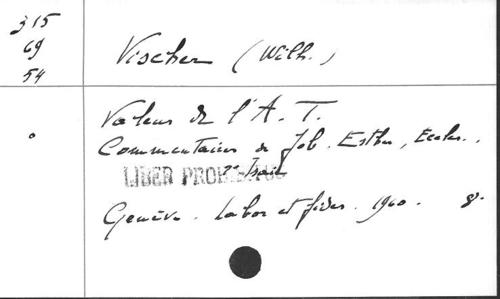 315
69
54
Vischer (Wilh.)
Valeur de l'A. T.
Commentaires de Job. Esther, Eccles.,
2e Isaïe
LIBER PROHIBITUS
Genève. Labor et fides. 1960. 8°